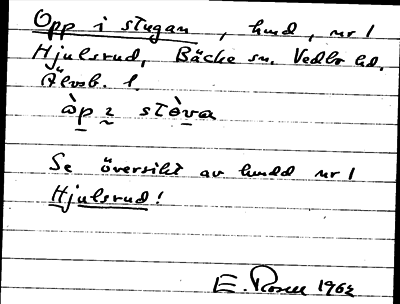 Opp i stugan, hmd, nr 1
Hjulsrud, Bäcke sn. Vedbo hd.
Älvsb. l.
àp ı stòva
Se översikt av hmdd nr 1
Hjulsrud!
E. Rosell 1962